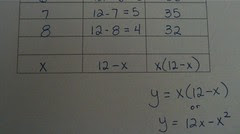 7 12-7=5 35
8 12-8=4 32
x 12-x x(12-x)
y = x(12-x)
or
y = 12x-x²